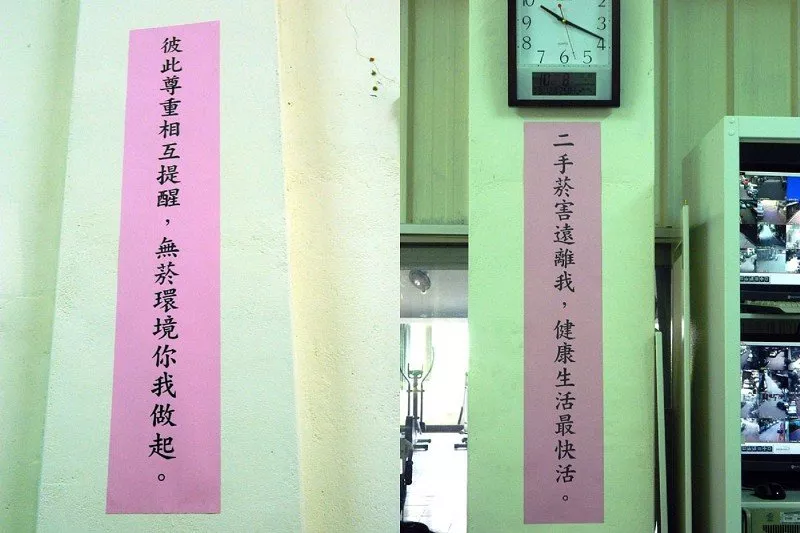 彼此尊重相互提醒，無菸環境你我做起。
二手菸害遠離我，健康生活最快活。
10 2 9 3 8 4 7 6 5